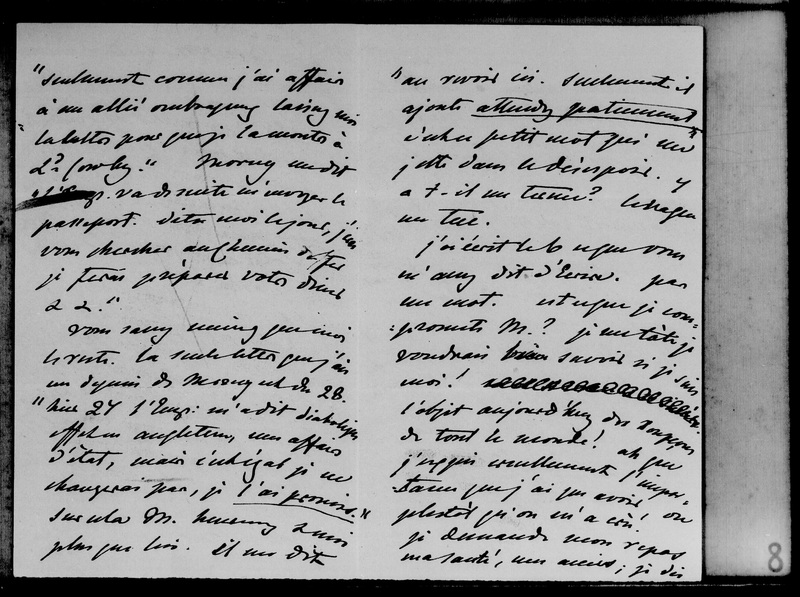 "seulement comme j'ai affaire
à un allié ombrageux laissez moi
la lettre pour que je la montre à
Ld Cowley." Morny me dit
"l'Emp. va de suite m'envoyer le
passeport. dites moi le jour, j'irai
vous chercher au chemin de fer
je ferai préparer votre dîner
&&."
vous savez mieux que moi
le reste. la seule lettre que j'ai
eu depuis de Morny est du 28.
"hier 27 l'Emp: m'a dit
effet en angleterre, une affaire
d'état, mais c'est égal je ne
changerai pas, je l'ai promis."
sur cela M.
plus que lui. il me dit
"au revoir ici. seulement il
ajoute attendez patiemment"
c'est ce petit mot qui me
jette dans le désespoir. y
a t-il un terme? le vague
me tue.
j'ai écrit le 6 ce que vous
m'avez dit d'écrire. pas
un mot. est ce que je com-
:promets M.? je me tâte je
voudrais bien savoir si je suis
moi!
l'objet aujourd'huy des soupçons
de tout le monde! ah que
j'expie cruellement l'impor-
tance que j'ai pu avoir, ou
plutôt qu'on m'a crû.
je demande mon repos
ma santé, mes amis; je dis
8